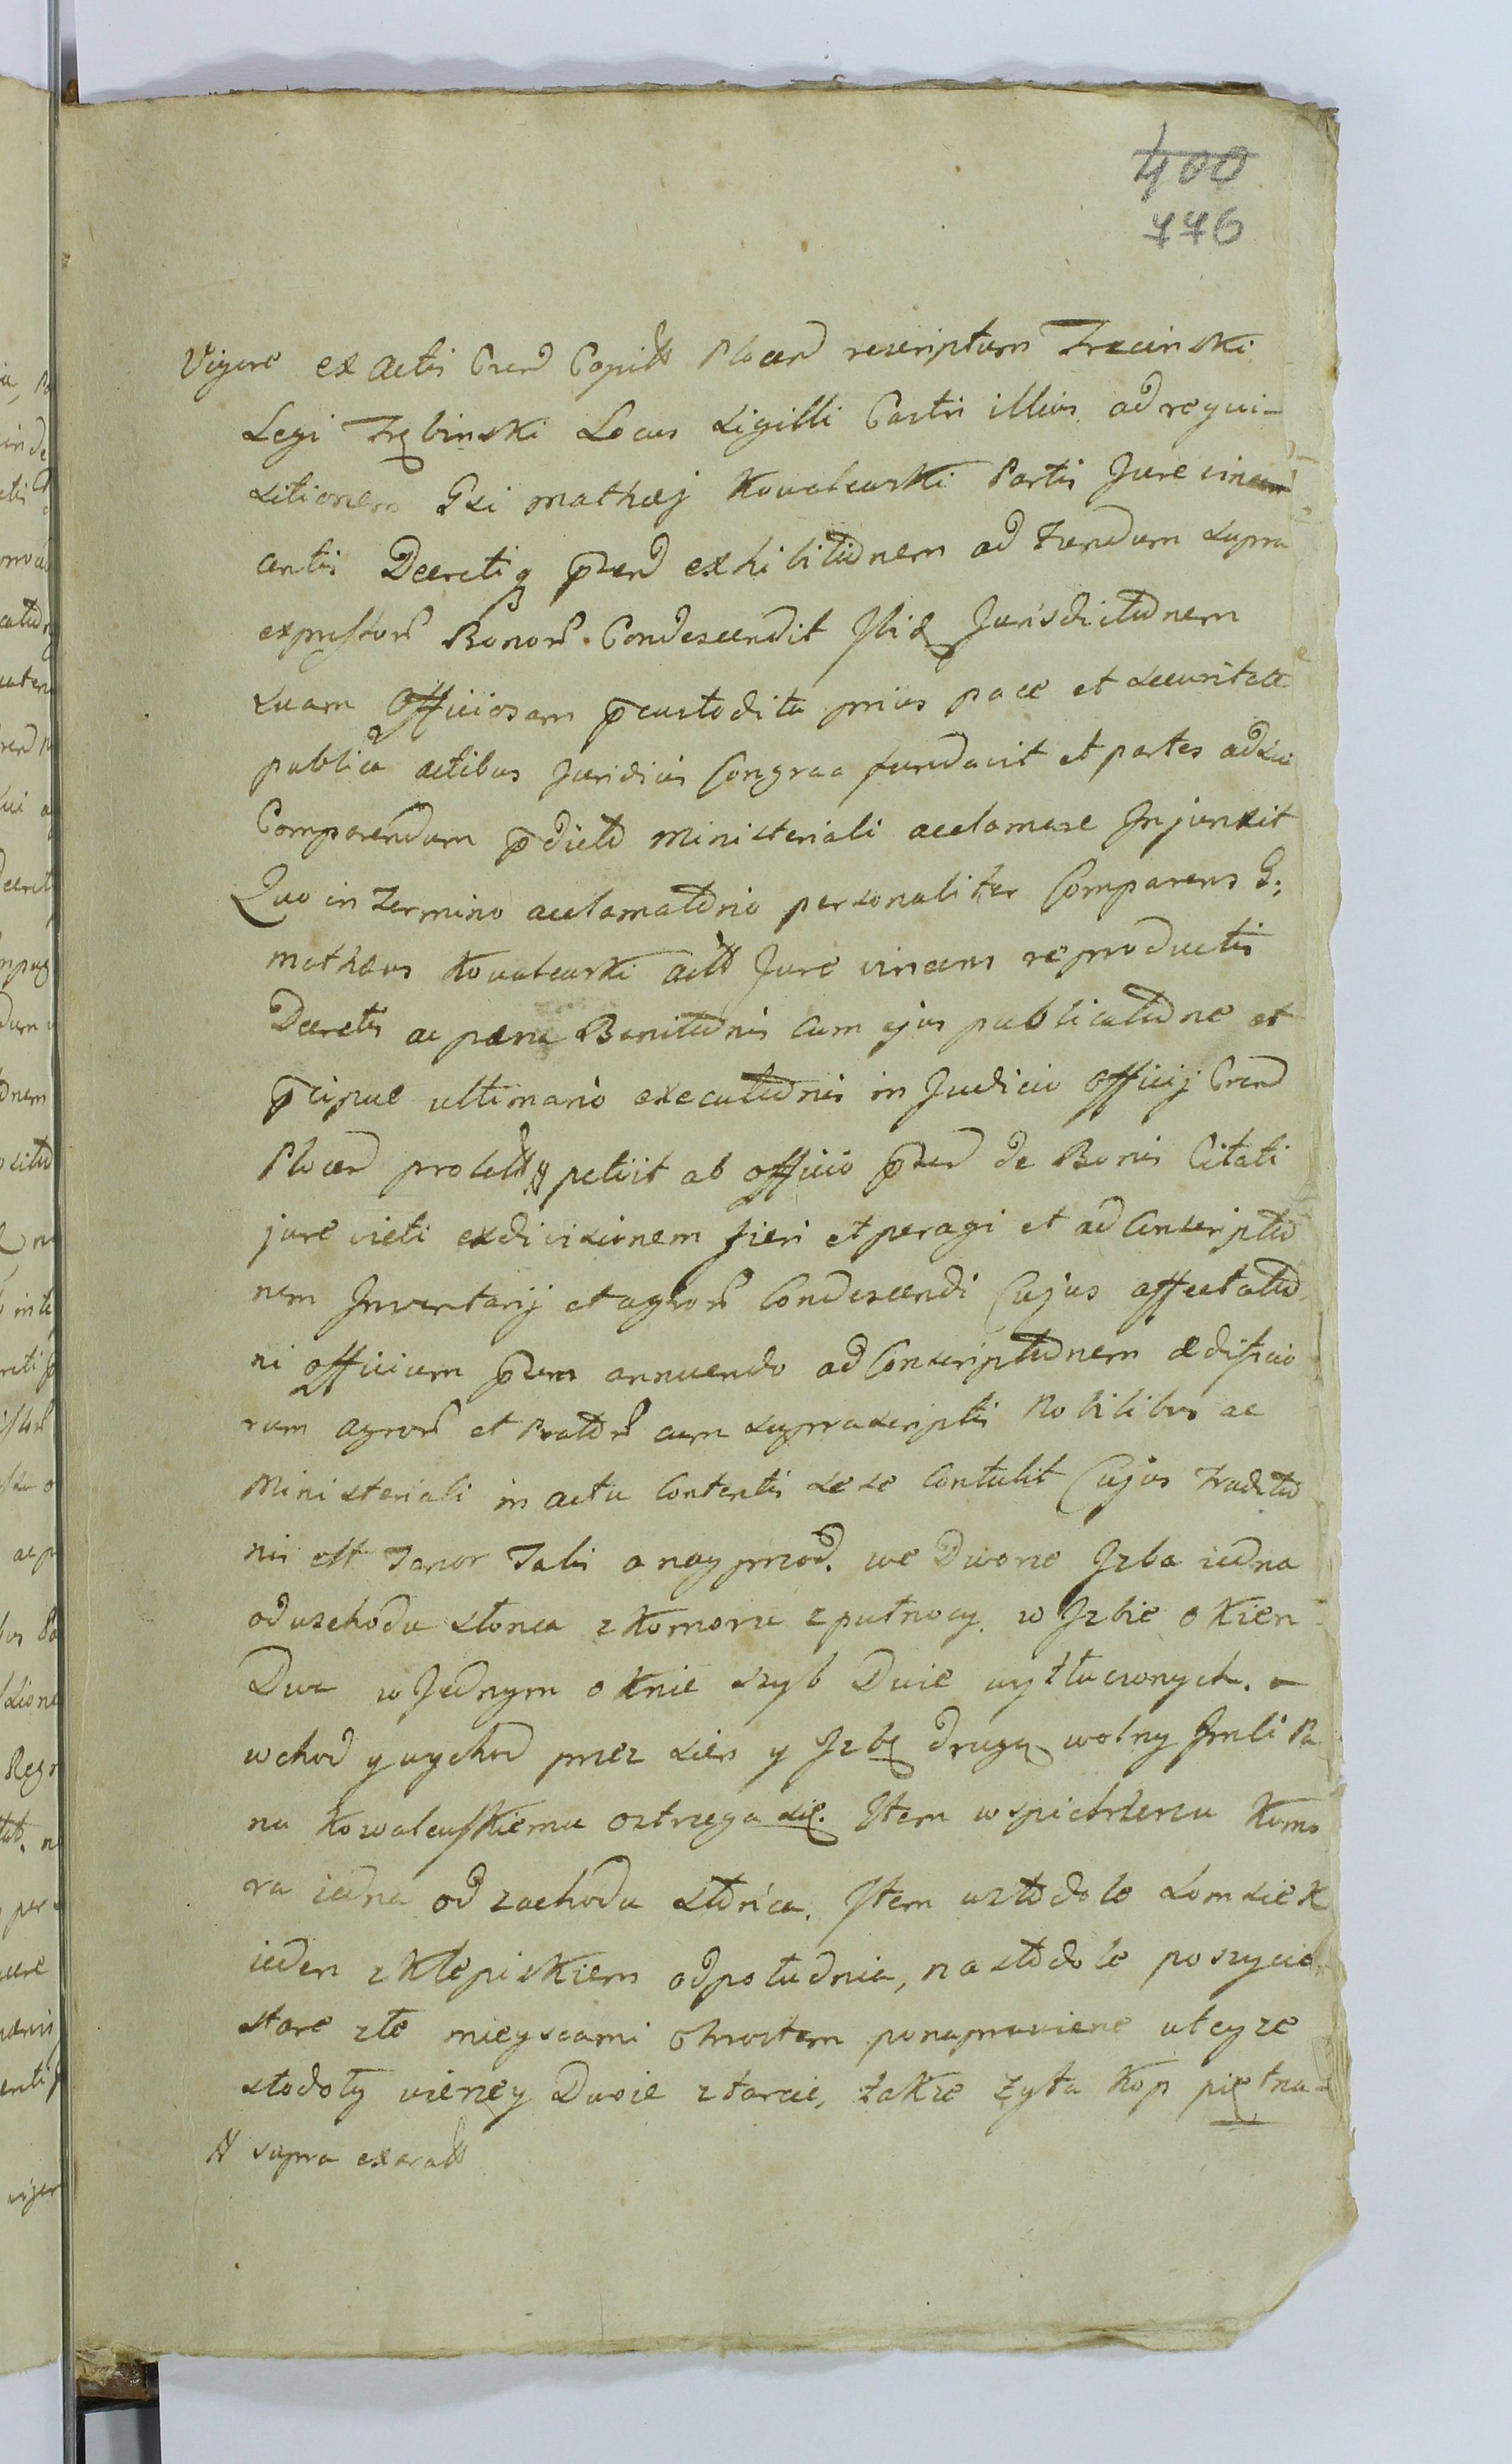 400
776
Vigore ex Actis Cren̄d Capitłł Plocen̄d rescriptum Trzcinski
Legi Trębinski Locus Sigilli Castri illius ad requi-
sitionem Gsi mathæj Kowalewski Partis Jure vincen
antis Decretiq p̄sen̄d exhibitiōnem ad Fundum supra
expressor̃ Bonor̃. Condescendit Ibiq Jurisdictiōnem
suam Officiosam p̄custodita prius pace et securitate
publica actibus Juridicis Congrua fundavit et partes ad sui
Comparendum p̄dicto Ministeriali acclamare Injunxit
Quo in Termino acclamatōrio personaliter Comparens G:
mathæus Kowalewski actłł Jure vincens reproductis
Decretis ac pæna Banitiōnis cum ejus publicatiōne et
p̄cipue ultimario executiōnis in Judicio Officij Cren̄d
Plocen̄d prolatłł # petiit ab officio p̄sen̄d de Bonis Citati
jure victi exdivisionem fieri et peragi et ad Conscriptiō
nem Inventarij et agror̃ Condescendi Cujus affectatiō
ni Officium p̄sens annuendo ad Conscriptiōnem ædificio
rum agror̃ et Pratōr̃ cum suprascriptis Nobilibus ac
Ministeriali in actu Contentis sese Contulit Cujus Traditiō
nis est Tenor Talis a nayprzod. we Dworze Izba iedna
od wschodu słonca z Komorą z pułnocy. w Izbie okien
Dwa w Jednym oknie szyb Dwie wytłuczonych. –
wchod y wychod przez sien y Izbę drugą wolny Jmsci Pa
nu Kowalewskiemu ostrzega się. Item w spichrzerzu Komo
ra iedna od zachodu słońca. Item w stodole somsiek
ieden z Klepiskiem od południa, na stodole poszycie
stare złe mieyscami Chrostem ponaprawiene u teyze
stodoły wierzey Dwoie z tarcic, takze zyta Kop piętna-
# supra exaratłł